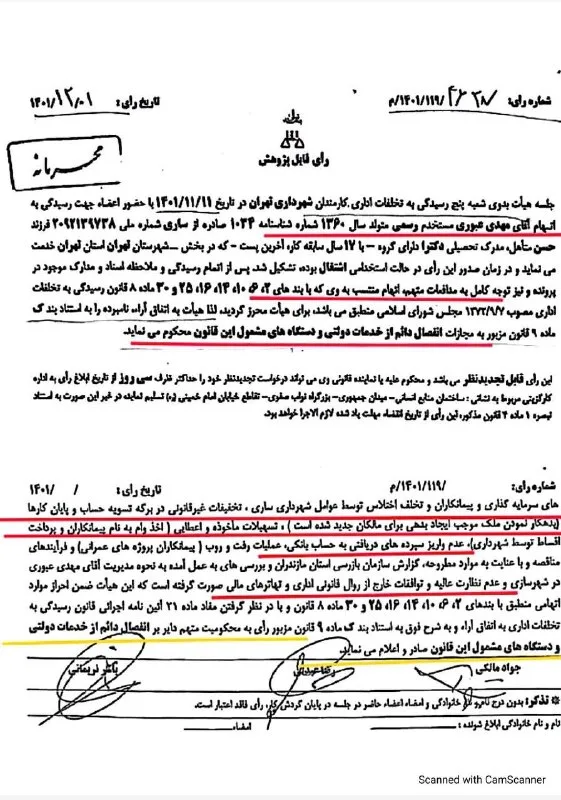 شماره رأی: ۱۴۰۱/۱۱۹/م/
تاریخ رأی: ۱۴۰۱/۱۲/۰۱
محرمانه
رأی قابل پژوهش
جلسه هیأت بدوی شعبه پنج رسیدگی به تخلفات اداری کارمندان شهرداری تهران در تاریخ ۱۴۰۱/۱۱/۱۱ با حضور اعضاء جهت رسیدگی به
اتهام آقای مهدی عبوری مستخدم رسمی متولد سال ۱۳۶۰ شماره شناسنامه ۱۰۳۴ صادره از ساری شماره ملی ۲۰۹۲۱۳۹۷۳۸ فرزند
حسن متأهل، مدرک تحصیلی دکترا دارای گروه – با ۱۷ سال سابقه کار، آخرین پست – که در بخش – شهرستان تهران استان تهران خدمت
می نماید و در زمان صدور این رأی در حالت استخدامی اشتغال بوده، تشکیل شد. پس از اتمام رسیدگی و ملاحظه اسناد و مدارک موجود در
پرونده و نیز توجه کامل به مدافعات متهم، اتهام منتسب به وی که با بند های ۲، ۶، ۱۰، ۱۴، ۱۶، ۲۵ و ۳۰ ماده ۸ قانون رسیدگی به تخلفات
اداری مصوب ۱۳۷۲/۹/۷ مجلس شورای اسلامی منطبق می باشد، برای هیأت محرز گردید، لذا هیأت به اتفاق آراء، نامبرده را به استناد بند ک
ماده ۹ قانون مزبور به مجازات انفصال دائم از خدمات دولتی و دستگاه های مشمول این قانون محکوم می نماید.
این رأی قابل تجدیدنظر می باشد و محکوم علیه یا نماینده قانونی وی می تواند درخواست تجدیدنظر خود را حداکثر ظرف سی روز از تاریخ ابلاغ رأی به اداره
کارگزینی مربوط به نشانی: ساختمان منابع انسانی- میدان جمهوری- بزرگراه نواب صفوی- تقاطع خیابان امام خمینی (ره) تسلیم نماید در غیر این صورت به استناد
تبصره ۱ ماده ۴ قانون مذکور، این رأی از تاریخ انقضاء مهلت یاد شده لازم الاجرا خواهد بود.
شماره رأی: ۱۴۰۱/۱۱۹/م
تاریخ رأی: / /۱۴۰۱
های سرمایه گذاری و پیمانکاران و تخلف اختلاس توسط عوامل شهرداری ساری، تخفیفات غیرقانونی در برگه تسویه حساب و پایان کارها
(بدهکار نمودن ملک موجب ایجاد بدهی برای مالکان جدید شده است)، تسهیلات مأخوذه و اعطایی (اخذ وام به نام پیمانکاران و پرداخت
اقساط توسط شهرداری)، عدم واریز سپرده های دریافتی به حساب بانکی، عملیات رفت و روب (پیمانکاران پروژه های عمرانی) و فرآیندهای
مناقصه و با عنایت به موارد مطروحه، گزارش سازمان بازرسی استان مازندران و بررسی های به عمل آمده به نحوه مدیریت آقای مهدی عبوری
در شهرسازی و عدم نظارت عالیه و توافقات خارج از روال قانونی اداری و تهاترهای مالی صورت گرفته است که این هیأت ضمن احراز موارد
اتهامی منطبق با بندهای ۲، ۶، ۱۰، ۱۴، ۱۶، ۲۵ و ۳۰ ماده ۸ قانون و با در نظر گرفتن مفاد ماده ۲۱ آئین نامه اجرائی قانون رسیدگی به
تخلفات اداری به اتفاق آراء و به شرح فوق به استناد بند ک ماده ۹ قانون مزبور رأی به محکومیت متهم دایر بر انفصال دائم از خدمات دولتی
و دستگاه های مشمول این قانون صادر و اعلام می نماید.
جواد مالکی
رضا عبدلی
یاسر نریمانی
* تذکر: بدون درج نام و نام خانوادگی و امضاء اعضاء حاضر در جلسه در پایان گردش کار، رأی فاقد اعتبار است.
نام و نام خانوادگی ابلاغ شونده : امضاء
Scanned with CamScanner